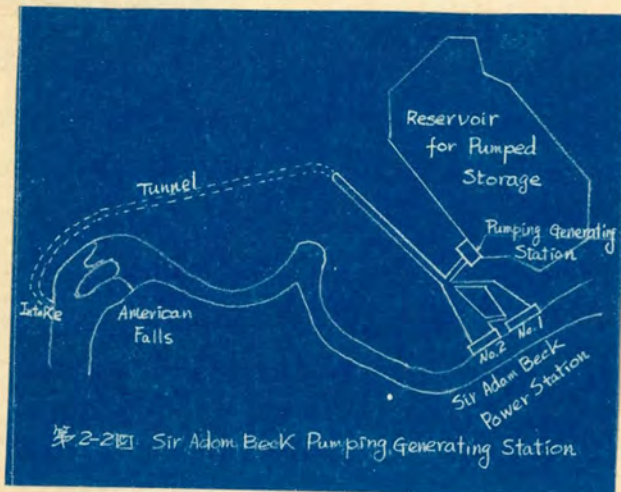 Reservoir
for Pumped
Storage
Tunnel
Pumping Generating
Station
Intake
American
Falls
No.2
No.1
Sir Adam Beck
Power Station
第2-2図 Sir Adam Beck Pumping Generating Station